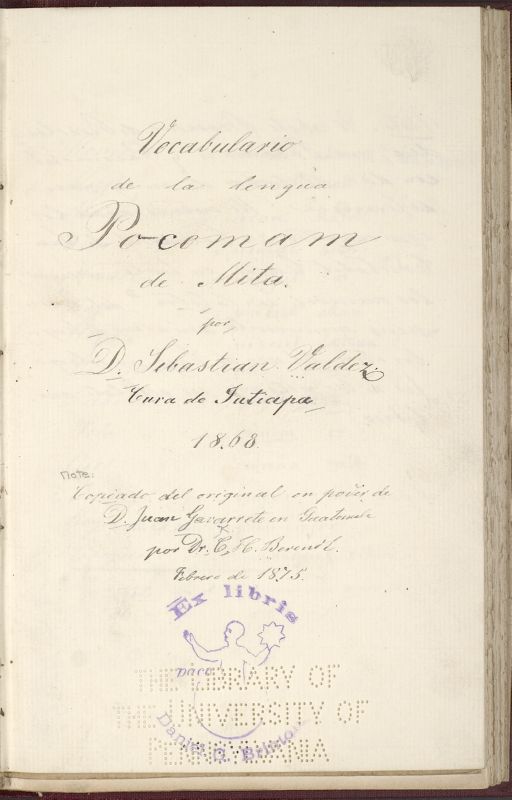 Vocabulario
de la lengua
Pocomam
de Mita.
por
D. Sebastian Valdez.
Cura de Jutiapa
1868.
Note:
Copiado del original en poder de
D. Juan Gavarrete en Guatemala
por Dr. C. H. Berendt.
Febrero de 1875.
Ex libris
THE LIBRARY OF
THE UNIVERSITY OF
Daniel G. Brinton
PENNSYLVANIA